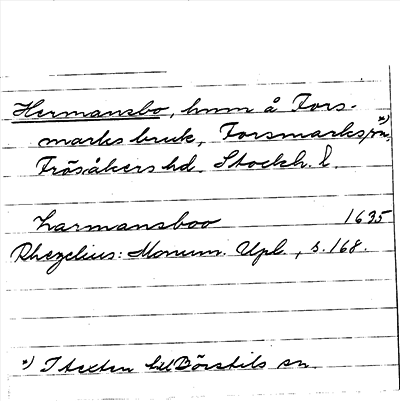 Hermansbo, hmn å Fors-
marks bruk, Forsmarks sn, *)
Frösåkers hd. Stockh. l.
Harmansboo 1635
Rhezelius: Monum. Upl., s. 168.
*) I texten till Börstils sn.